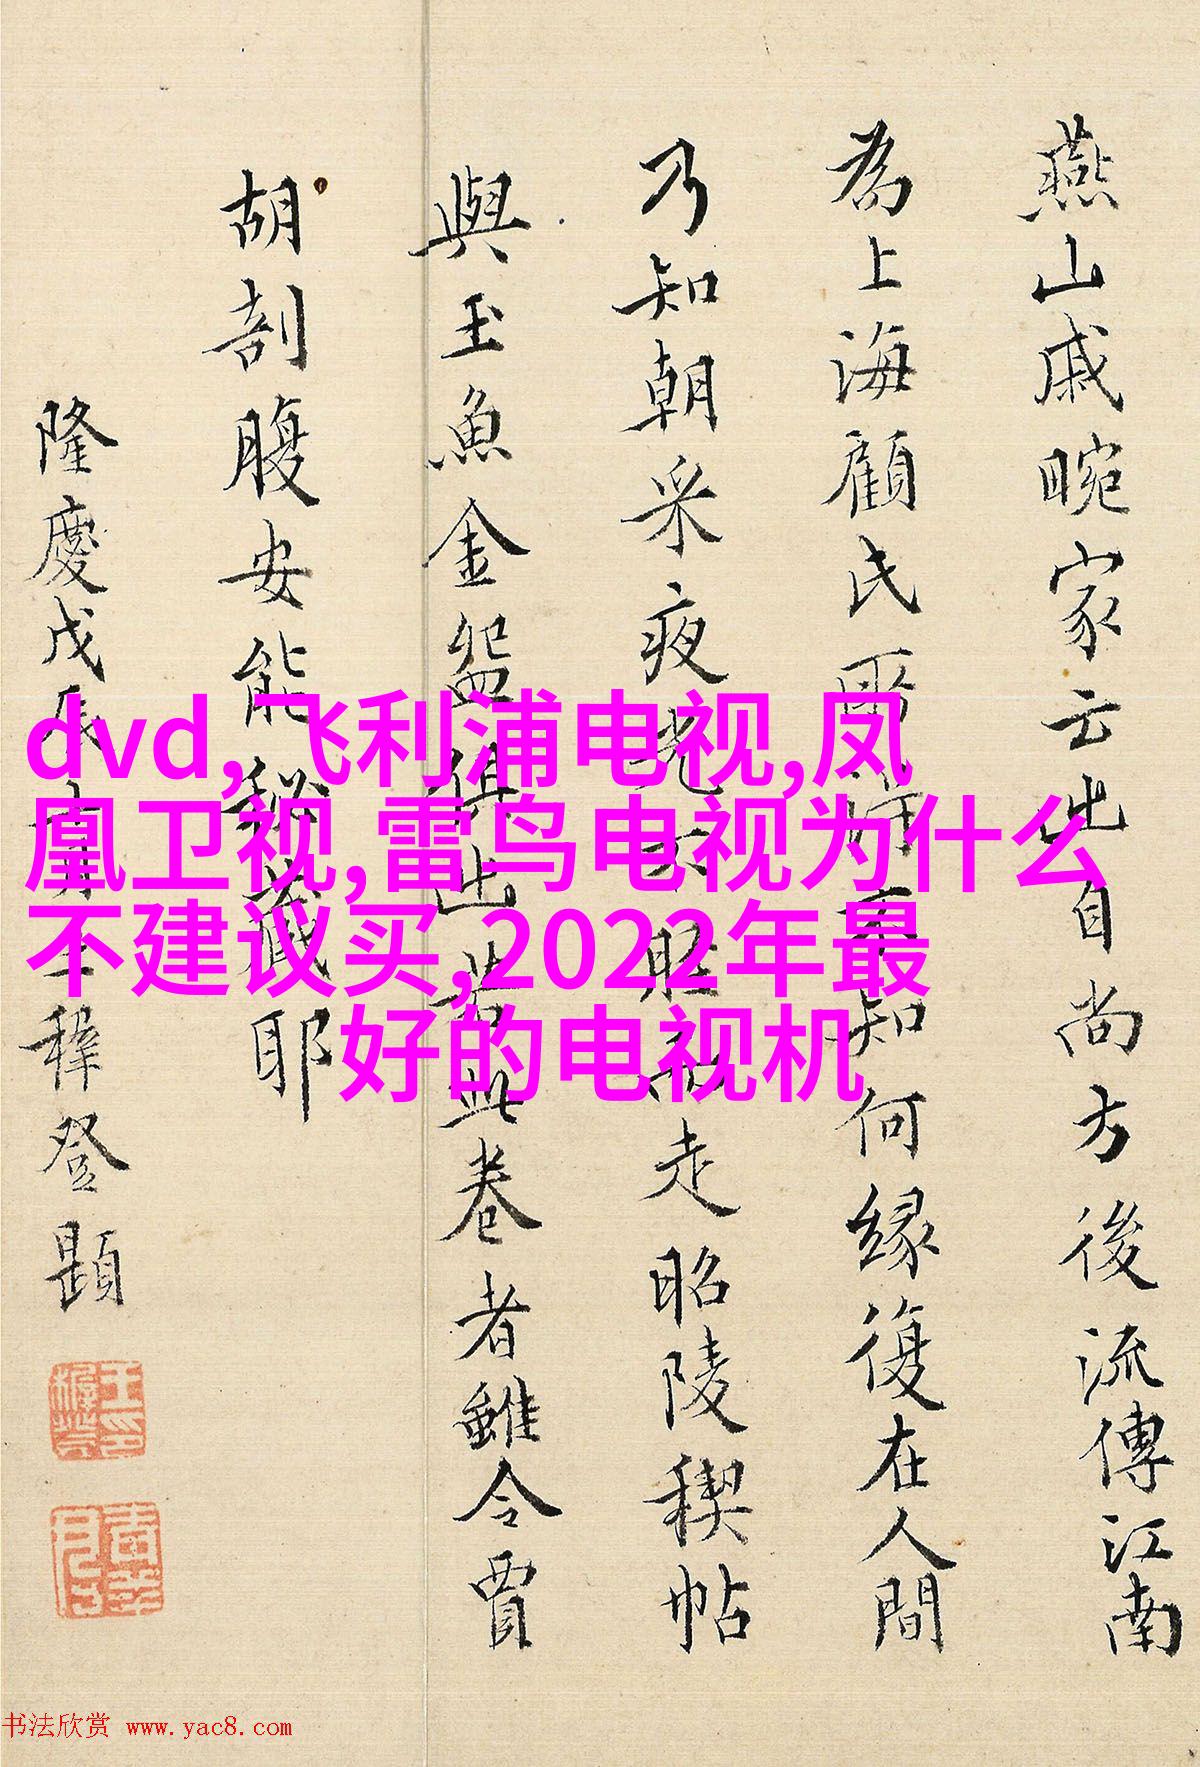 燕山戚畹家云此自尚方後流傳江南
為上海顧氏所得不知何緣復在人間
乃知朝采夜光不脛而走昭陵稧帖
與玉魚金盌俱出若此卷者雖令賈
胡剖腹安能秘藏耶
隆慶戊辰六月王穉登題
dvd,飞利浦电视,凤
凰卫视,雷鸟电视为什么
不建议买,2022年最
好的电视机
书法欣赏 www.yac8.com